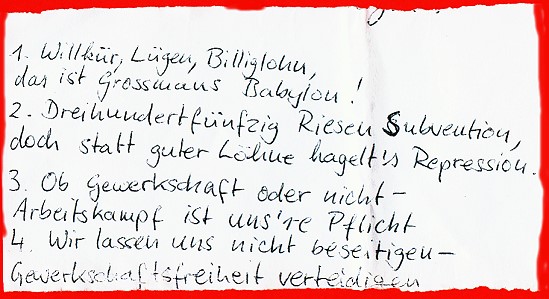 1. Willkür, Lügen, Billiglohn,
das ist Grossmans Babylon!
2. Dreihundertfünfzig Riesen Subvention,
doch statt guter Löhne hagelt's Repression.
3. Ob Gewerkschaft oder nicht –
Arbeitskampf ist uns're Pflicht
4. Wir lassen uns nicht beseitigen –
Gewerkschaftsfreiheit verteidigen